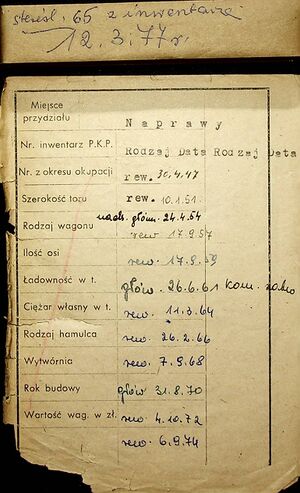 skreśl. 65 z inwentarza
12.3.77 r.
Miejsce przydziału
Naprawy
Nr. inwentarz P.K.P.
Rodzaj Data Rodzaj Data
Nr. z okresu okupacji
rew. 30.4.47
Szerokość toru
rew. 10.1.51
nadb. główn. 24.4.54
Rodzaj wagonu
rew 17.9.57
Ilość osi
rew. 17.9.59
Ładowność w t.
główn. 26.6.61 kom.
Ciężar własny w t.
rew. 11.3.64
Rodzaj hamulca
rew. 26.2.66
Wytwórnia
rew. 7.9.68
Rok budowy
głów 31.8.70
Wartość wag. w zł.
rew. 4.10.72
rew. 6.9.74